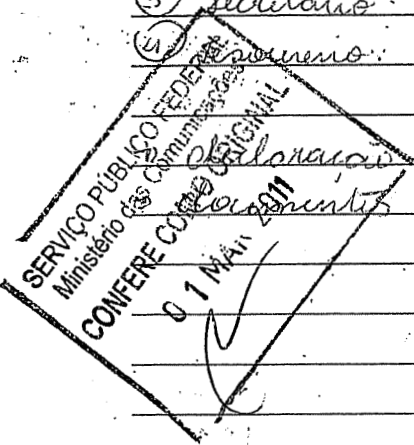 secretário:
tesoureiro:
SERVIÇO PÚBLICO FEDERAL
Ministério das Comunicações
CONFERE COM O ORIGINAL
01 MAR 2011